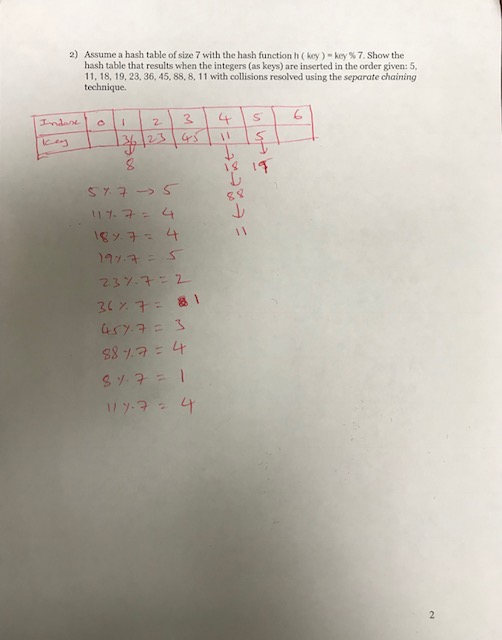 2) Assume a hash table of size 7 with the hash function h ( key ) = key % 7. Show the
hash table that results when the integers (as keys) are inserted in the order given: 5,
11, 18, 19, 23, 36, 45, 88, 8, 11 with collisions resolved using the separate chaining
technique.
Index 0 1 2 3 4 5 6
Key 36 23 45 11 5
↓ ↓ ↓
8 18 19
↓
88
↓
11
5 % 7 → 5
11 % 7 = 4
18 % 7 = 4
19 % 7 = 5
23 % 7 = 2
36 % 7 = 1
45 % 7 = 3
88 % 7 = 4
8 % 7 = 1
11 % 7 = 4
2